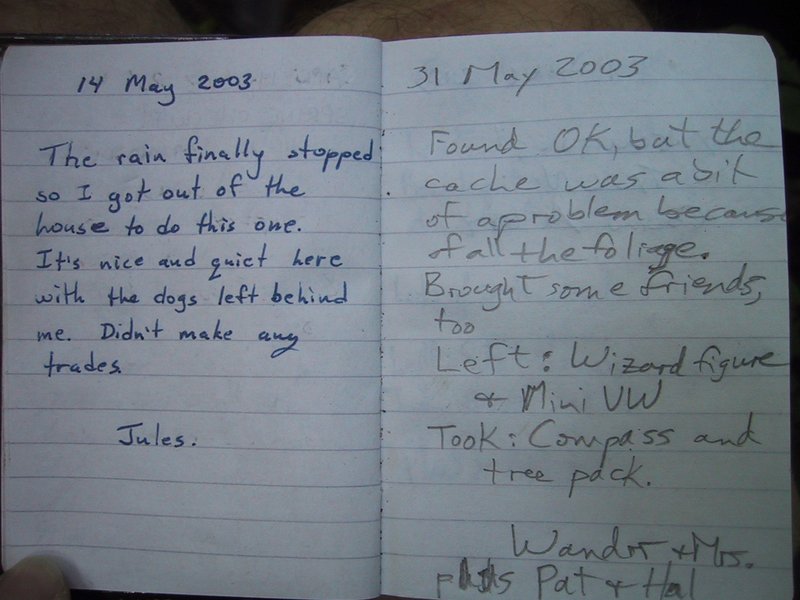 14 May 2003
The rain finally stopped
so I got out of the
house to do this one.
It's nice and quiet here
with the dogs left behind
me. Didn't make any
trades.
Jules.
31 May 2003
Found OK, but the
cache was a bit
of a problem because
of all the foliage.
Brought some friends,
too
Left: Wizard figure
& Mini VW
Took: Compass and
tree pack.
Wandrr & Mrs.
plus Pat & Hal